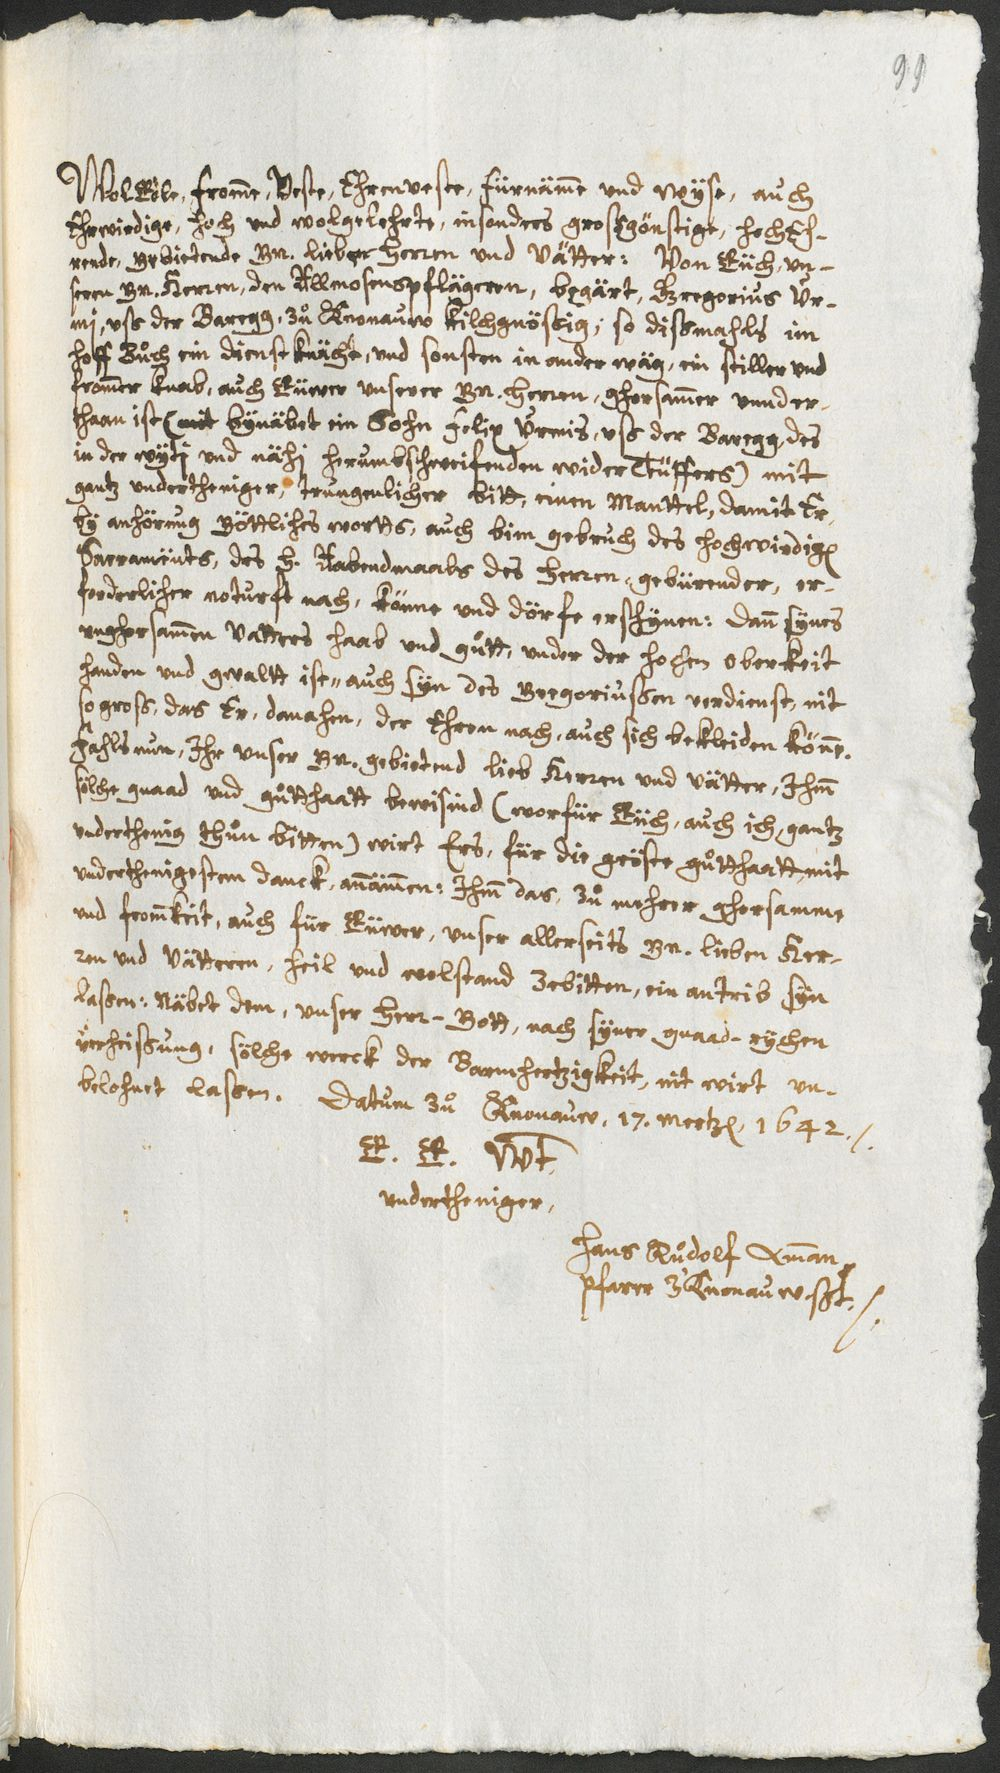 99
WolEdle, fromme, Veste, Ehrenveste, fürnämme und wyse, auch
Ehrwirdige, hoch und wolgelehrte, insonders großgönstige, hochEh-
rende, Gebietende Gn. liebe Herren und Vätter: Von Eüch, un-
seren Gn. Herren, den Allmosenspflägeren, begärt, Gregorius Ur-
mi, uss der Baregg, zů Knonauw kilchgnößig, so dißmahls im
hoff Bůch ein dienstknächt, und sonsten in ander wäg, ein stiller und
frommer knab, auch Eüwer unserer Gn. Herren, ghorsammer under-
thaan ist (mit bynäbet ein Sohn Felix Urmis, uss der Baregg, des
in der wyti und nähi herumbschweifenden widerTeüffers) mit
gantz undertheniger, trungenlicher bitt, einen Manttel, damit Er,
by anhörung Göttliches wortts, auch bim gebruch des hochwirdigen
Sacraments, des h. Aabendmaals des Herren, gebürender, er-
forderlicher noturft nach, könne und dörfe erschynen: dann synes
unghorsammen Vatters haab und gůtt, under der hohen oberkeit
handen und gewaltt ist, auch syn des Gregoriußen verdienst, nit
so gross, das Er, danahen, der Ehren nach, auch sich bekleiden könne.
Fahls nun, Ihr unser Gn. gebietend lieb Herren und Vätter, Ihmm
sölche gnaad und gůtthaatt bewisind (worfür Eüch, auch ich, gantz
underthenig thůn bitten) wirt Ers, für die gröste gůtthaatt, mit
underthenigestem danck, annämmen: Ihmm das, zů mehrer ghorsamme
und frommkeit, auch für Eüwer, unser allerseits Gn. lieben Her-
ren und Vätteren, heil und wolstand zebitten, ein antrib syn
laßen: Näbet dem, unser Herr-Gott, nach syner gnaad-rychen
verheißung, sölche werck der Barmhertzigkeit, nit wirt un-
belohnet laßen. Datum zů Knonauw, 17. Mertzen, 1642.
E. E. Wt.
undertheniger,
Hans Růdolf
pfarer z'Knonauw